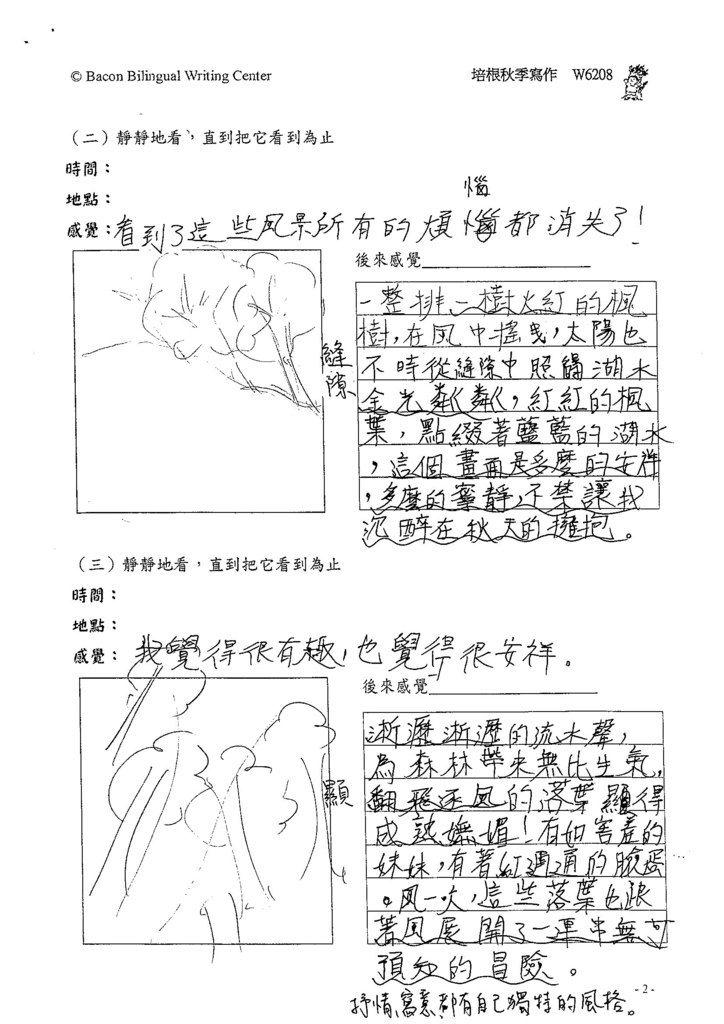 © Bacon Bilingual Writing Center
培根秋季寫作 W6208
（二）靜靜地看，直到把它看到為止
時間：
地點：
惱
感覺：看到了這些風景所有的煩惱都消失了！
後來感覺
一整排一樹火紅的楓
樹，在風中搖曳，太陽也
不時從縫隙中照歸湖水
縫隙
金光粼粼，紅紅的楓
葉，點綴著藍藍的湖水
，這個畫面是多麼的安祥
，多麼的寧靜，不禁讓我
沉醉在秋天的擁抱。
（三）靜靜地看，直到把它看到為止
時間：
地點：
感覺：我覺得很有趣，也覺得很安祥。
後來感覺
淅瀝淅瀝的流水聲，
為森林帶來無比生氣，
翻飛逐風的落葉顯得
顯
成熟嫵媚！有如害羞的
妹妹，有著紅通通的臉蛋
。風一吹，這些落葉也跟
著風展開了一連串無可
預知的冒險。
抒情寫意都有自己獨特的風格。
-2-